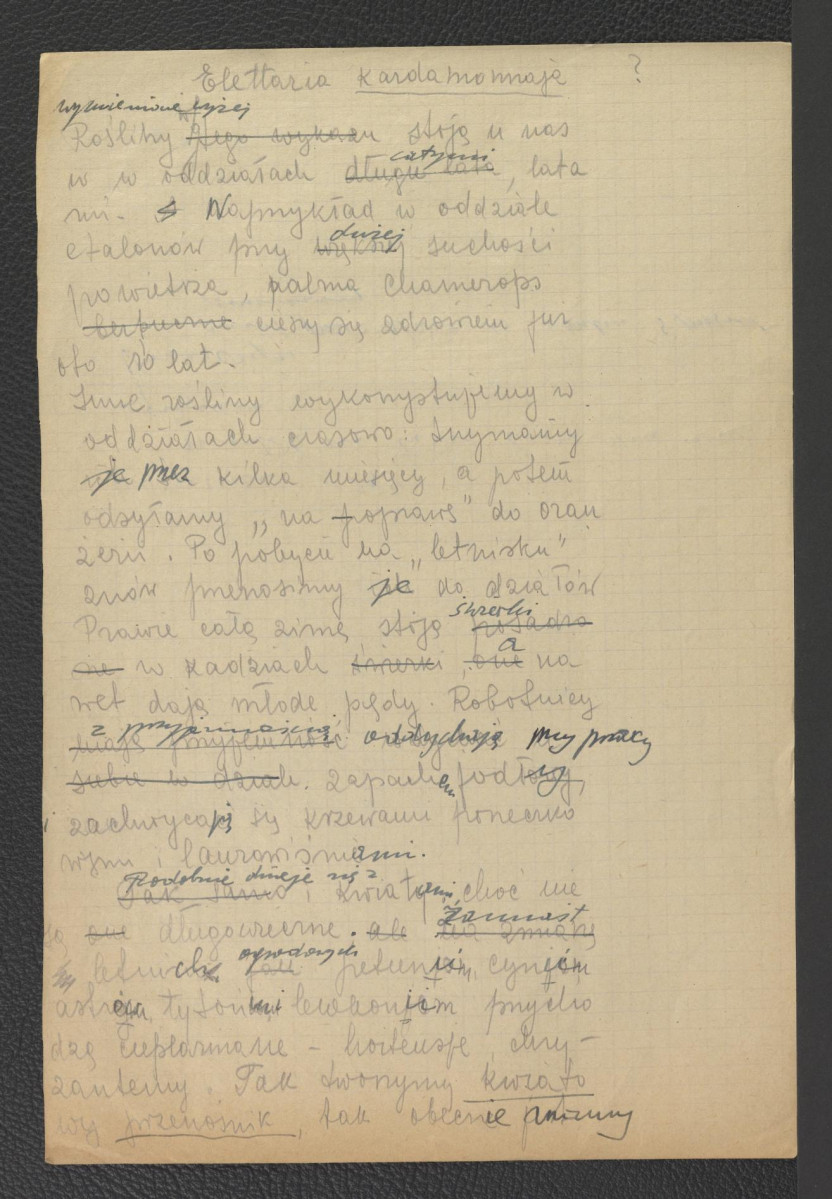 Elettaria Kardamonnaja ?
wymienione wyżej
Rośliny tego wykazu stoją u nas
w w oddziałach długie lata, całymi lata
mi. Naprzykład w oddziale
etalonów przy większej dużej suchości
powietrza, palma Chamerops
cieszy się zdrowiem już
oto 10 lat.
Inne rośliny wykorzystujemy w
oddziałach czasowo: trzymamy
je przez kilka miesięcy, a potem
odsyłamy „na poprawę" do oran
żerii. Po pobycie na „letnisku"
znów przenosimy je do działów
Prawie całą zimę stoją świerki posadzo
ne w kadziach świerki, one a na
wet dają młode pędy. Robotnicy
mają przyjemność z przyjemnością oddychają przy pracy
sobie w dziale. zapachem jodły,
i zachwycają się krzewami porzeczko
wymi i laurowiśniami.
Podobnie dzieje się z
Tak samo i kwiatami, choć nie
są one długowieczne. ale na zmianę Zamiast
letnich ogrodowych petunii, cynii,
astrów, tytoniu lewkonii przycho
dzą cieplarniane - hortensje, chry-
zantemy. Tak tworzymy kwiato
wy przenośnik, tak obecnie